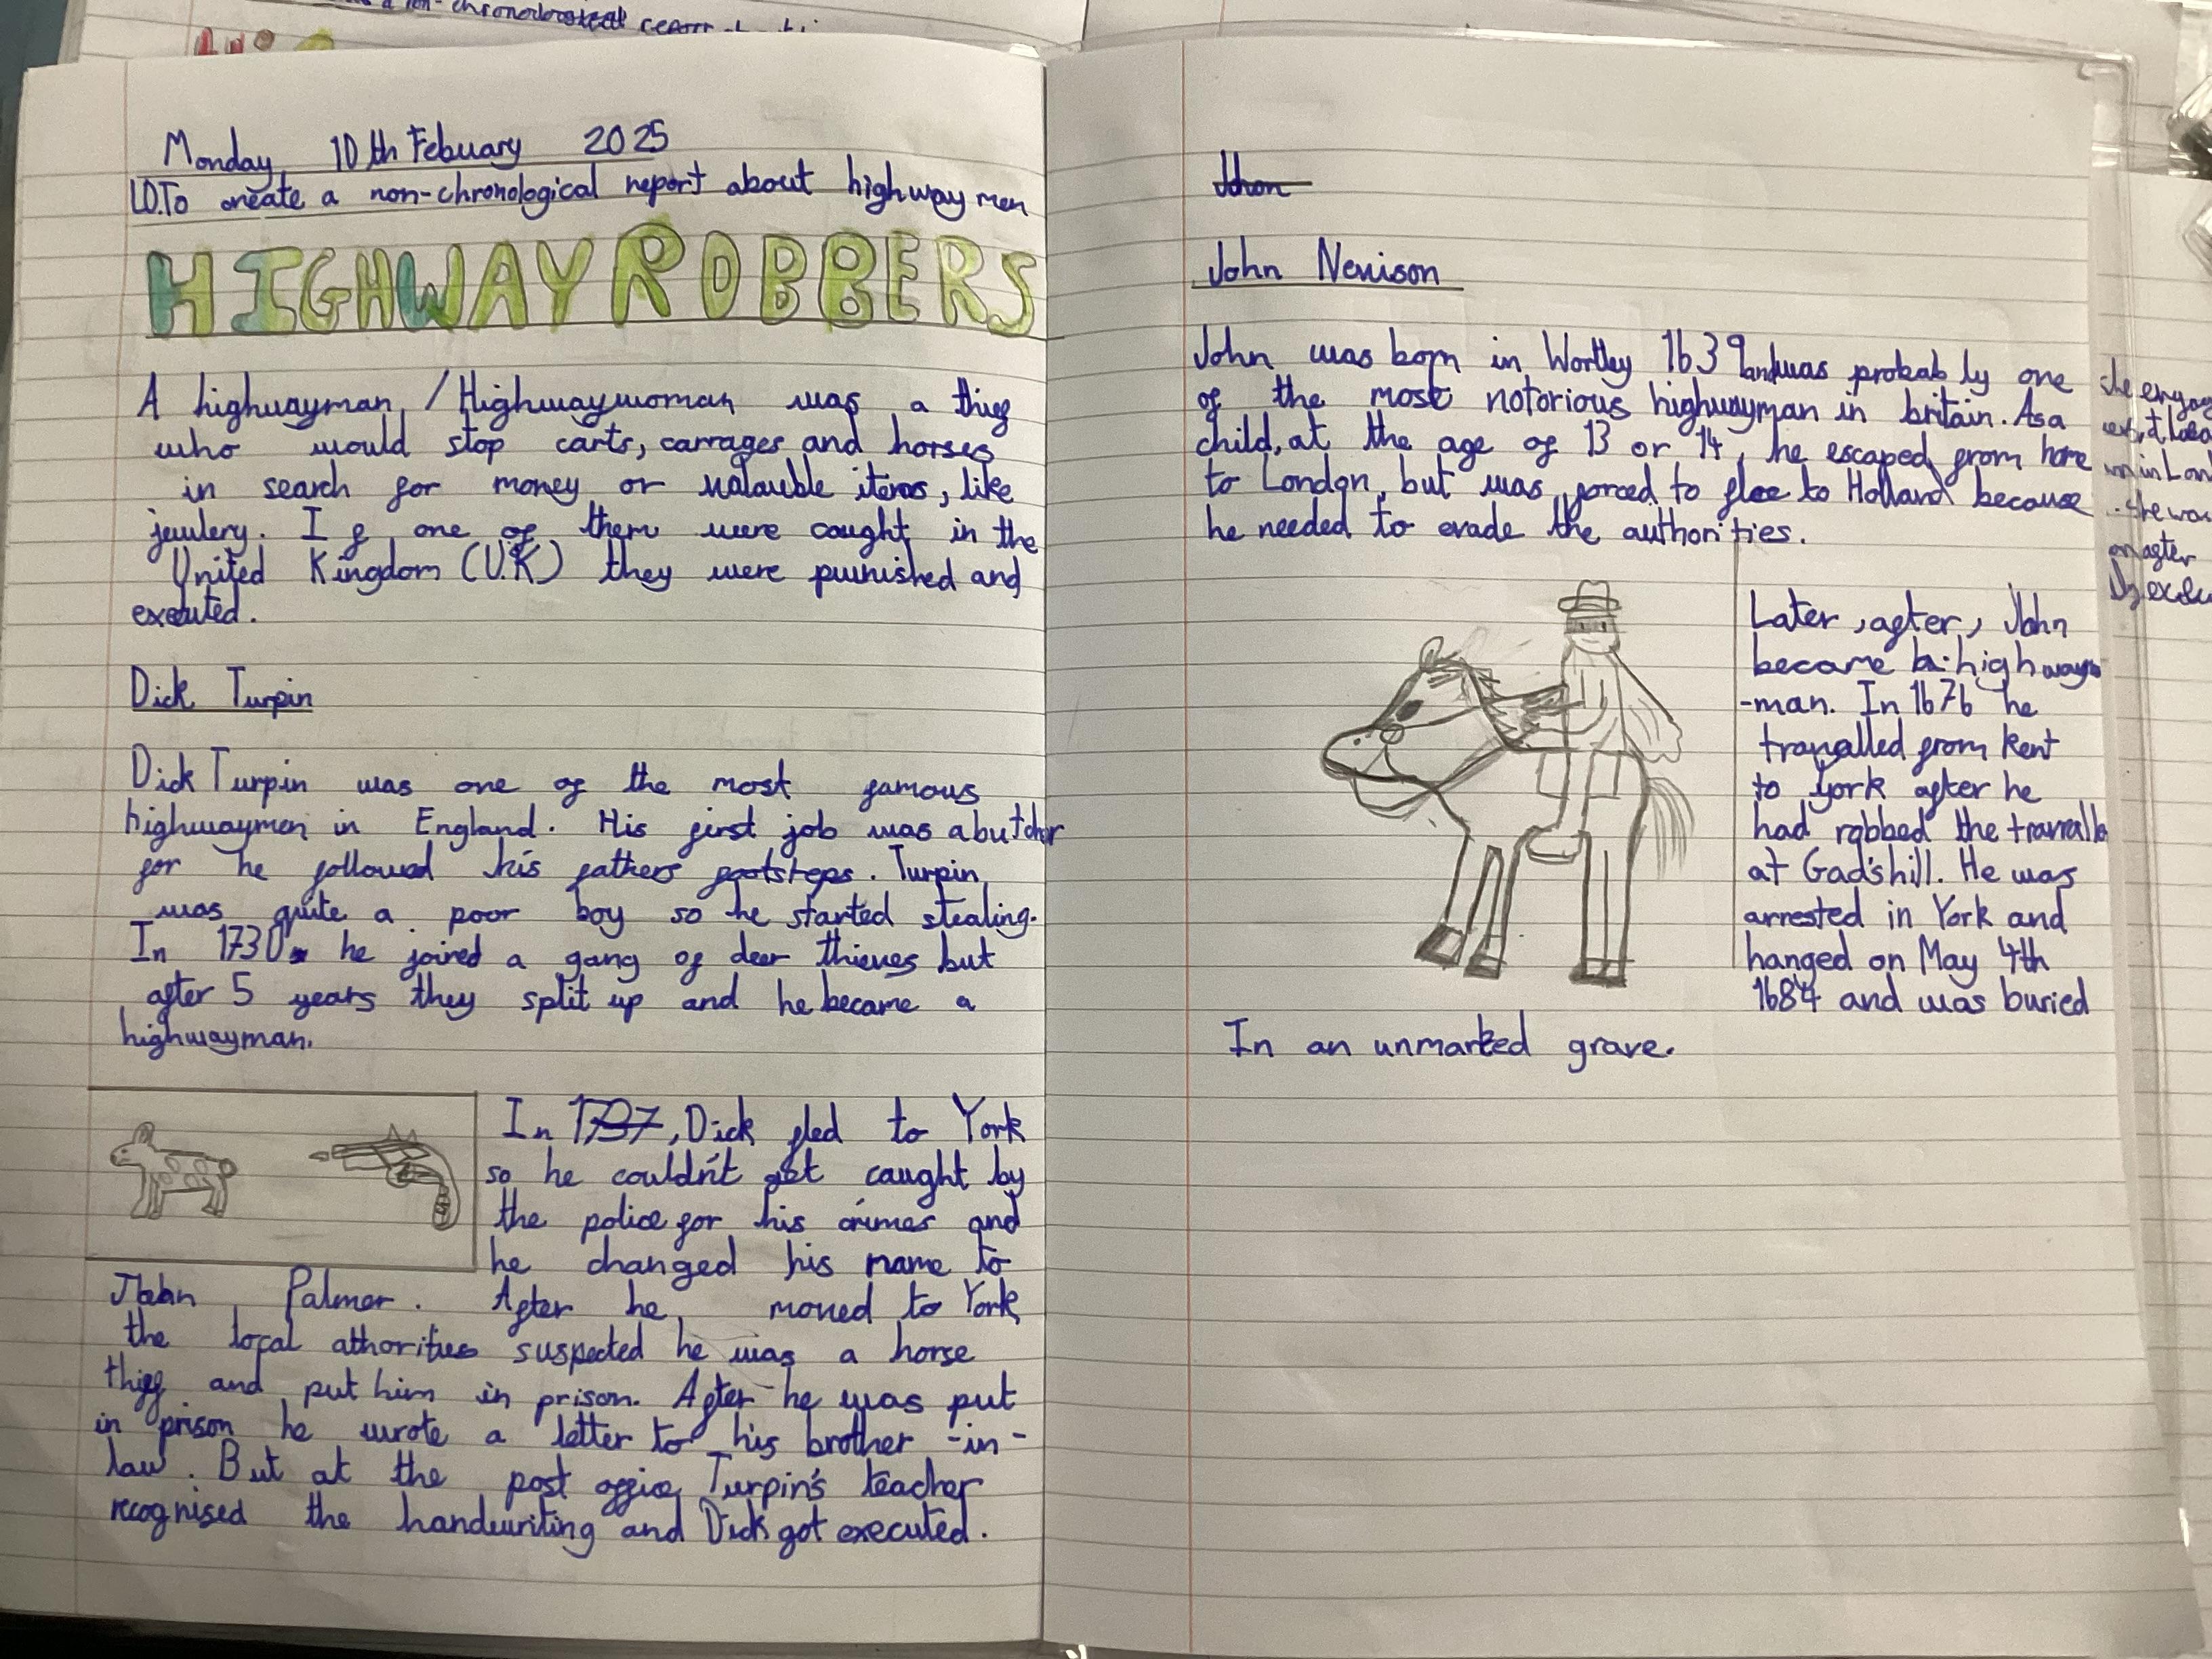 Monday 10th Febuary 2025
LO.To create a non-chronological report about highwaymen
HIGHWAY ROBBERS
A highwayman /Highwaywoman was a thief
who would stop carts, carrages and horses
in search for money or valauble items, like
jewlery. If one of them were caught in the
United Kingdom (U.K) they were punished and
executed.
Dick Turpin
Dick Turpin was one of the most famous
highwaymen in England. His first job was a butcher
for he followed his fathers footsteps. Turpin
was quite a poor boy so he started stealing.
In 1730 he joined a gang of deer thieves but
after 5 years they split up and he became a
highwayman.
In 1737, Dick fled to York
so he couldn't get caught by
the police for his crimes and
he changed his name to
John Palmer. After he moved to York
the local athorities suspected he was a horse
thief and put him in prison. After he was put
in prison he wrote a letter to his brother -in-
law. But at the post office Turpin's teacher
recognised the handwriting and Dick got executed.
Jhon
John Nevison
John was born in Wortley 1639 and was probably one
of the most notorious highwayman in britain. As a
child, at the age of 13 or 14, he escaped from home
to London, but was forced to flee to Holland because
he needed to evade the authorities.
Later, after, John
became a highway
-man. In 1676 he
travalled from Kent
to York after he
had robbed the
at Gad'shill. He was
arrested in York and
hanged on May 4th
1684 and was buried
In an unmarked grave.